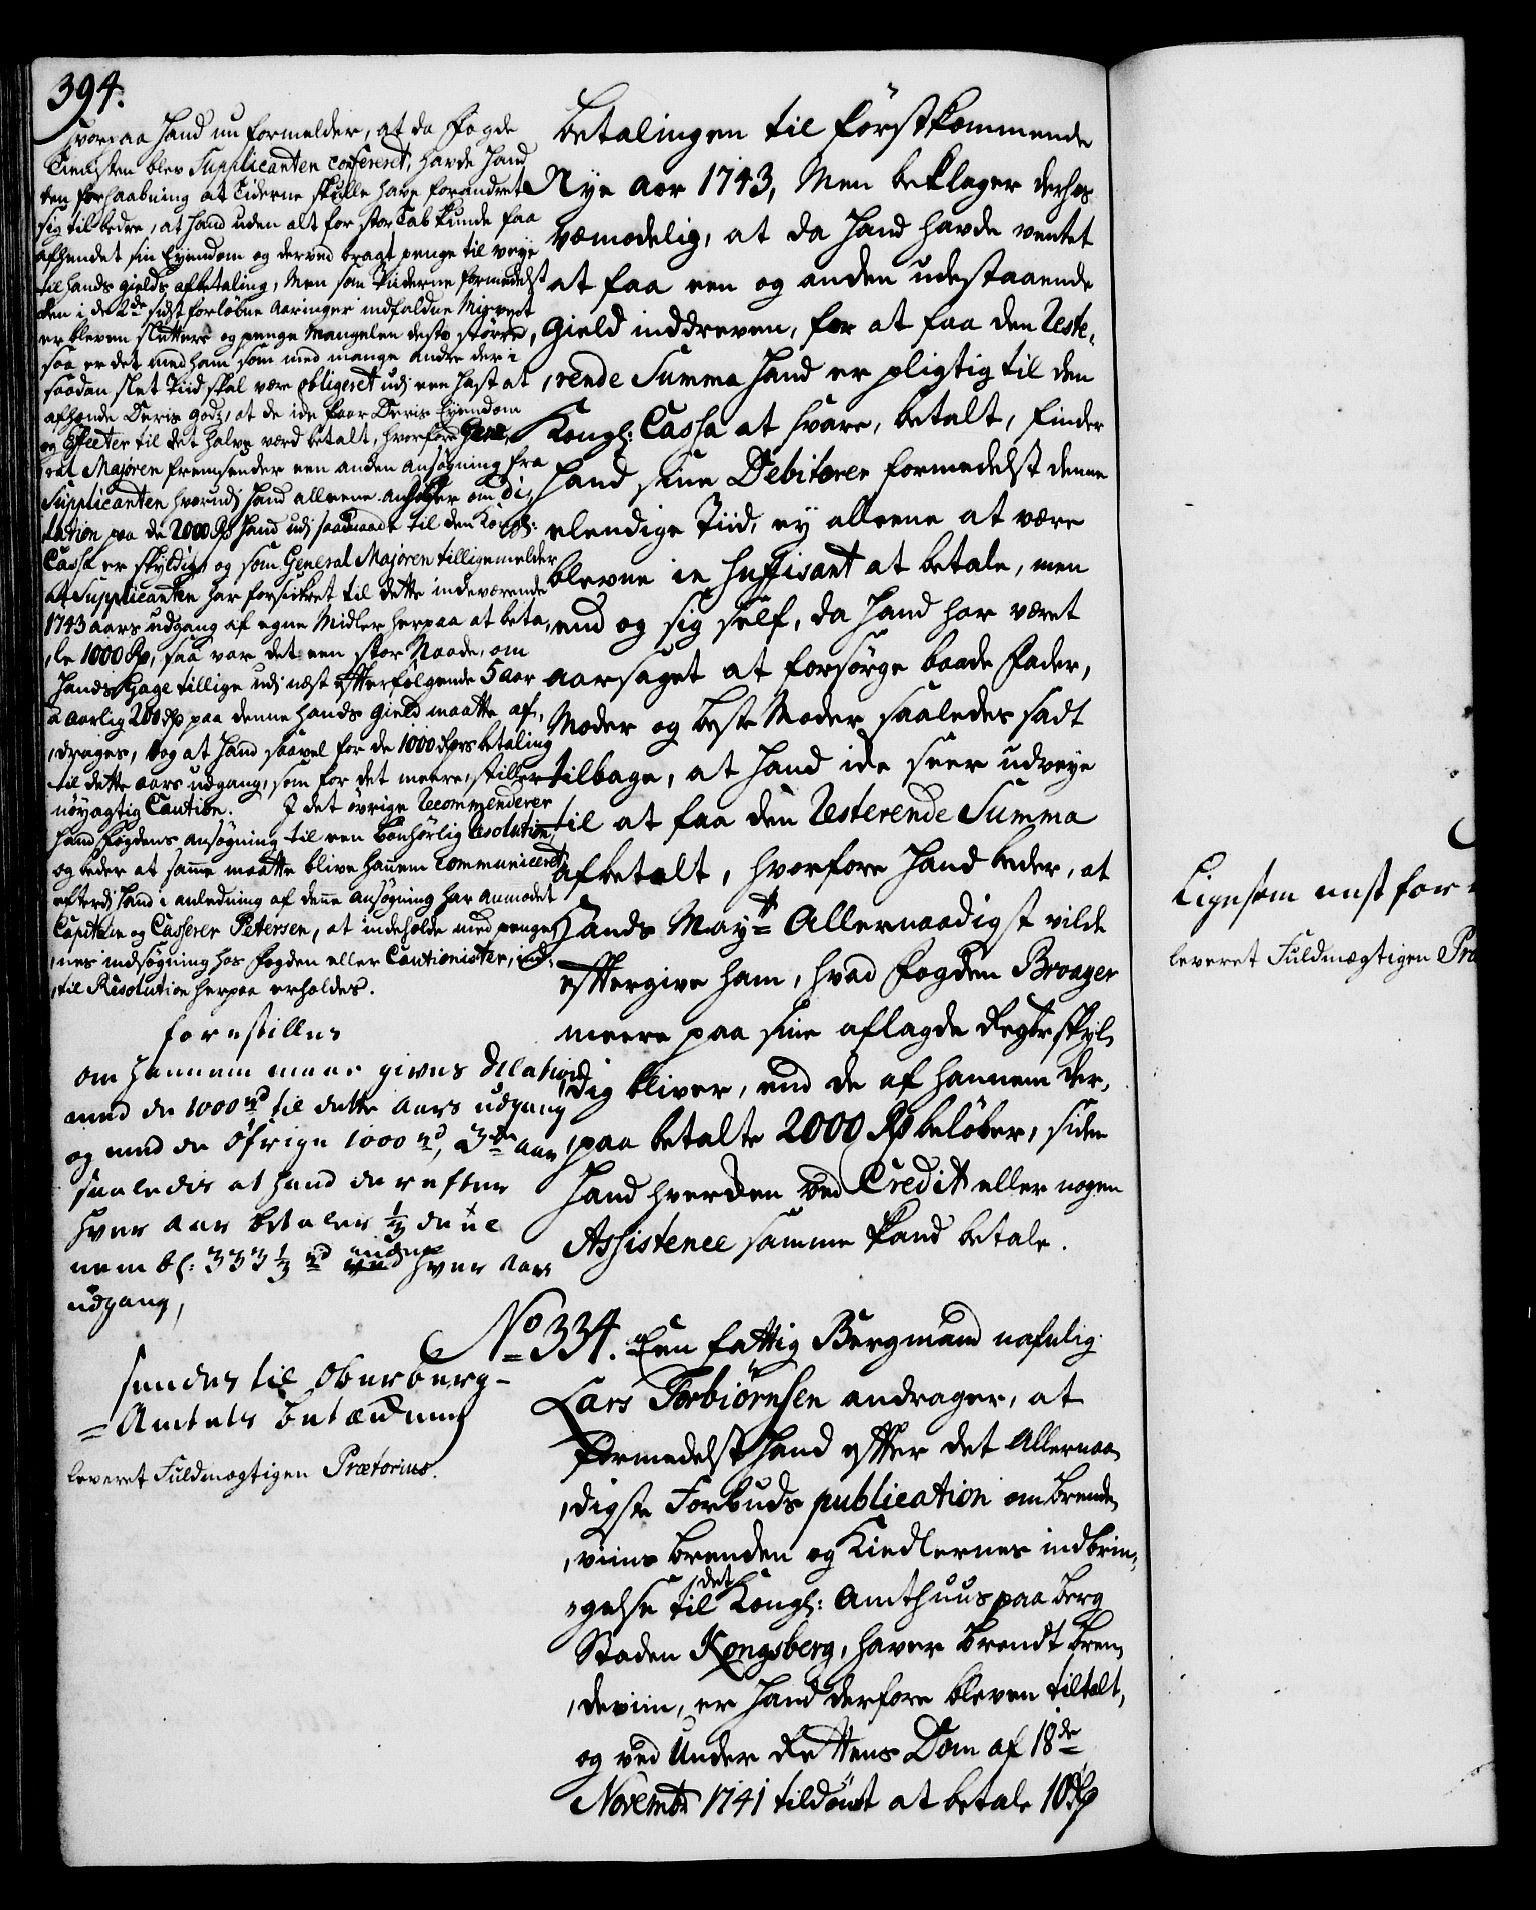 394.
hvorpaa Hand nu formelder, at da Fogde
Tienisten blev Supplicanten confereret, havde Hand
den forhaabning at Tiderne skulle have forandret
sig til bedre, at Hand uden alt for stor Tab kunde faa
afhendet sin Eyendom og derved bragt penge til veye
til Hands gields afbetaling, Men som Tiiderne formedelst
den i de 2de sidst forløbne Aaringer indfaldne Misvext
er bleven slettere og penge Mangelen desto større,
saa er det med ham som med mange andre der i
saadan slet Tiid skal være obligeret udj een Hast at
afhende Deris godz, at de icke faar Deris Eyendom
og Effecter til det halve værd betalt, hvorfore Gene,
ral Majoren fremsender een anden ansøgning fra
Supplicanten hvorudj Hand alleene anholder om Di,
lation paa de 2000 Rd Hand udj saadmaade til den Kongl:
Cassa er skyldig, og som General Majoren tilligemelder
at Supplicanten har forsickret til dette indeværende
1743 aars udgang af egne Midler herpaa at beta,
,le 1000 Rd, saa var det een stor Naade, om
Hands Gage tillige udj næst efterfølgende 5 aar
a aarlig 200 Rd paa denne Hands Gield maatte af,
,drages, og at Hand saavel for de 1000 Rdrs betaling
til dette aars udgang, som for det meere, stiller
nøyagtig Caution. I det øvrige Recommenderer
Hand Fogdens ansøgning til een bønhørlig Resolution,
og beder at samme maatte blive hannem communiceret
efterdj Hand i anledning af denne ansøgning har anmodet
Capitain og Casserer Petersen, at indeholde med penge,
,nes indsøgning hos Fogden eller Cautionister, ind,
,til Resolution herpaa erholdes.
forestilles
om hannem maae gives Dilation
med de 1000 rd til dette Aars udgang
og med de øfrige 1000 rd, 3de aar
saaledis at hand derefter
hver Aar betaler 1/3 deel
nemb: 333 1/3 rd inden hver Aars
udgang,
sendes til Oberberg-
=Amtets betænkning
leveret Fuldmægtigen Prætorius.
betalingen til førstkommende
Nye aar 1743, Men beklager derhos
væmodelig, at da Hand havde ventet
at faa een og anden udestaaende
Gield inddreven, for at faa den Reste,
,rende Summa Hand er pligtig til den
Kongl: Cassa at svare, betalt, finder
Hand sine Debitorer formedelst denne
elendige Tiid, ey alleene at være
blevne in suffisant at betale, men
end og sig self, da Hand har været
aarsaget at forsørge baade Fader,
Moder og beste Moder saaledes sadt
tilbage, at Hand icke seer udveye
til at faa den Resterende Summa
afbetalt, hvorfore Hand beder, at
Hands Mayt Allernaadigst vilde
eftergive ham, hvad Fogden Broager
meere paa sine aflagde Regtr skyl,
,dig bliver, end de af hannem der,
,paa betalte 2000 Rd beløber, siden
Hand hverken ved Credit eller nogen
Assistence samme kand betale.
No 334. Een fattig Bergmand nafnlig
Lars Torbiørnsen andrager, at
formedelst Hand efter det Allernaa,
,digste Forbuds publication om brende,
,viins brenden og Kiedlernes indbrin,
,gelse til det Kongl: Amthuus paa Berg
Staden Kongsberg, haver brendt bren,
,deviin, er Hand derfore bleven tiltalt,
og ved Under Rettens Dom af 18de
Novembr 1741 tildømt at betale 10 Rd
leveret Fuldmægtigen